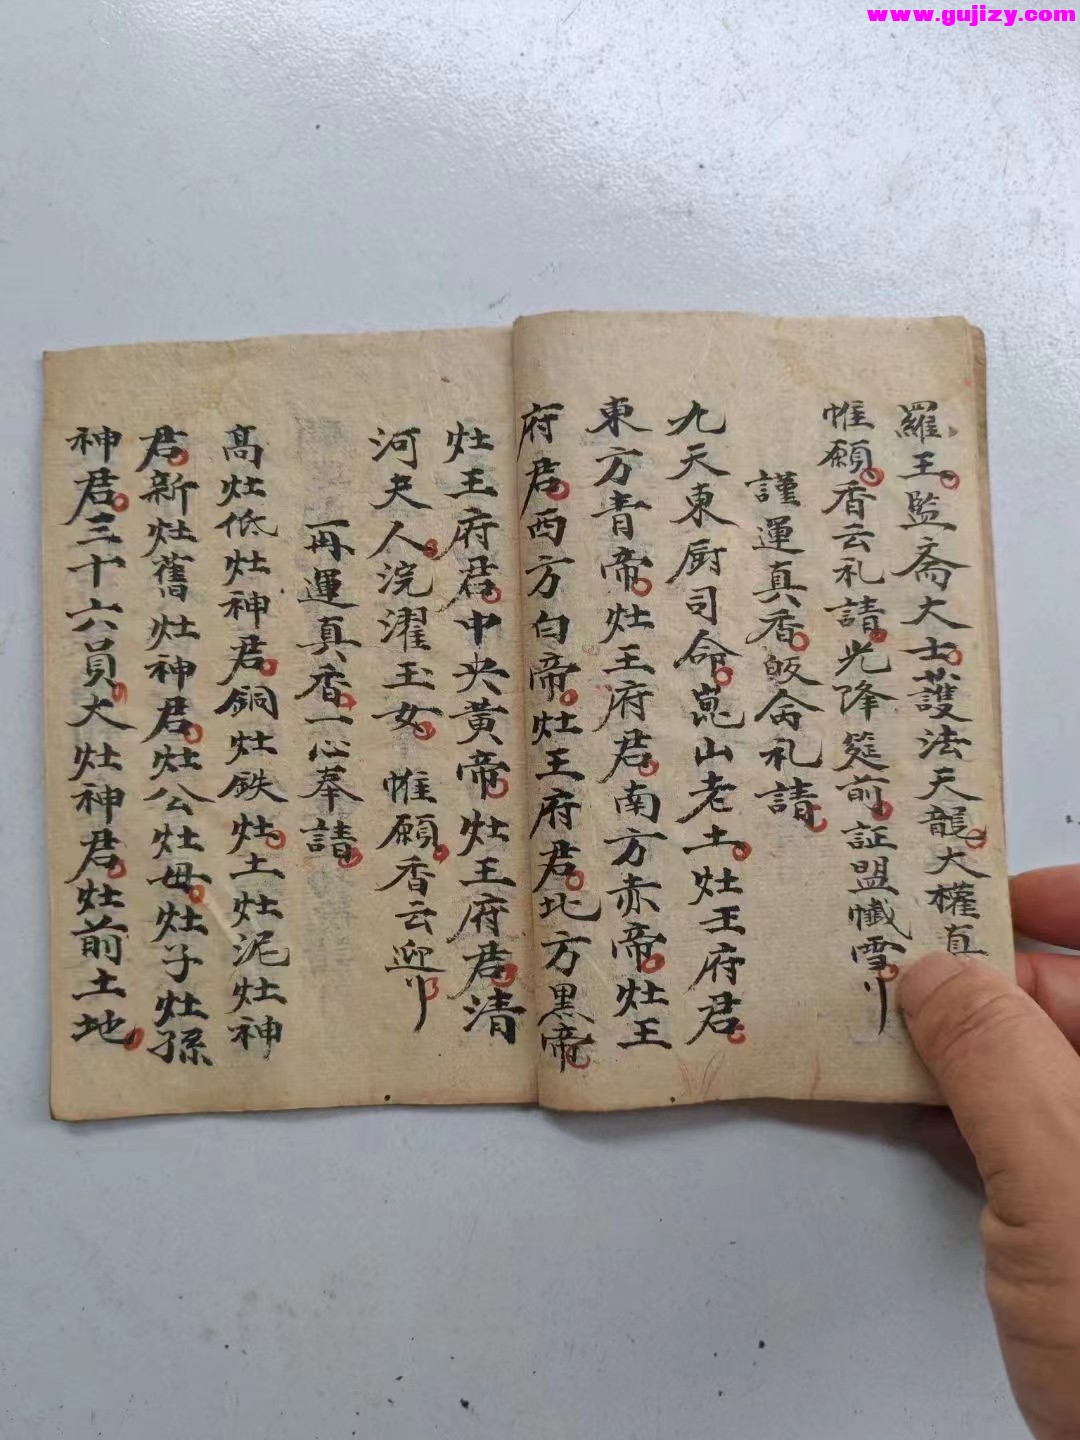 www.gujizy.com
羅王監斋大士護法天龍大權真
惟願香云礼請光降筵前証盟懺雪
謹運真香皈命礼請
九天東厨司命崑山老土灶王府君
東方青帝灶王府君南方赤帝灶王
府君西方白帝灶王府君北方黑帝
灶王府君中央黄帝灶王府君清
河夫人浣濯玉女惟願香云迎
再運真香一心奉請
高灶低灶神君銅灶鉄灶土灶泥灶神
君新灶舊灶神君灶公灶母灶子灶孫
神君三十六員大灶神君灶前土地